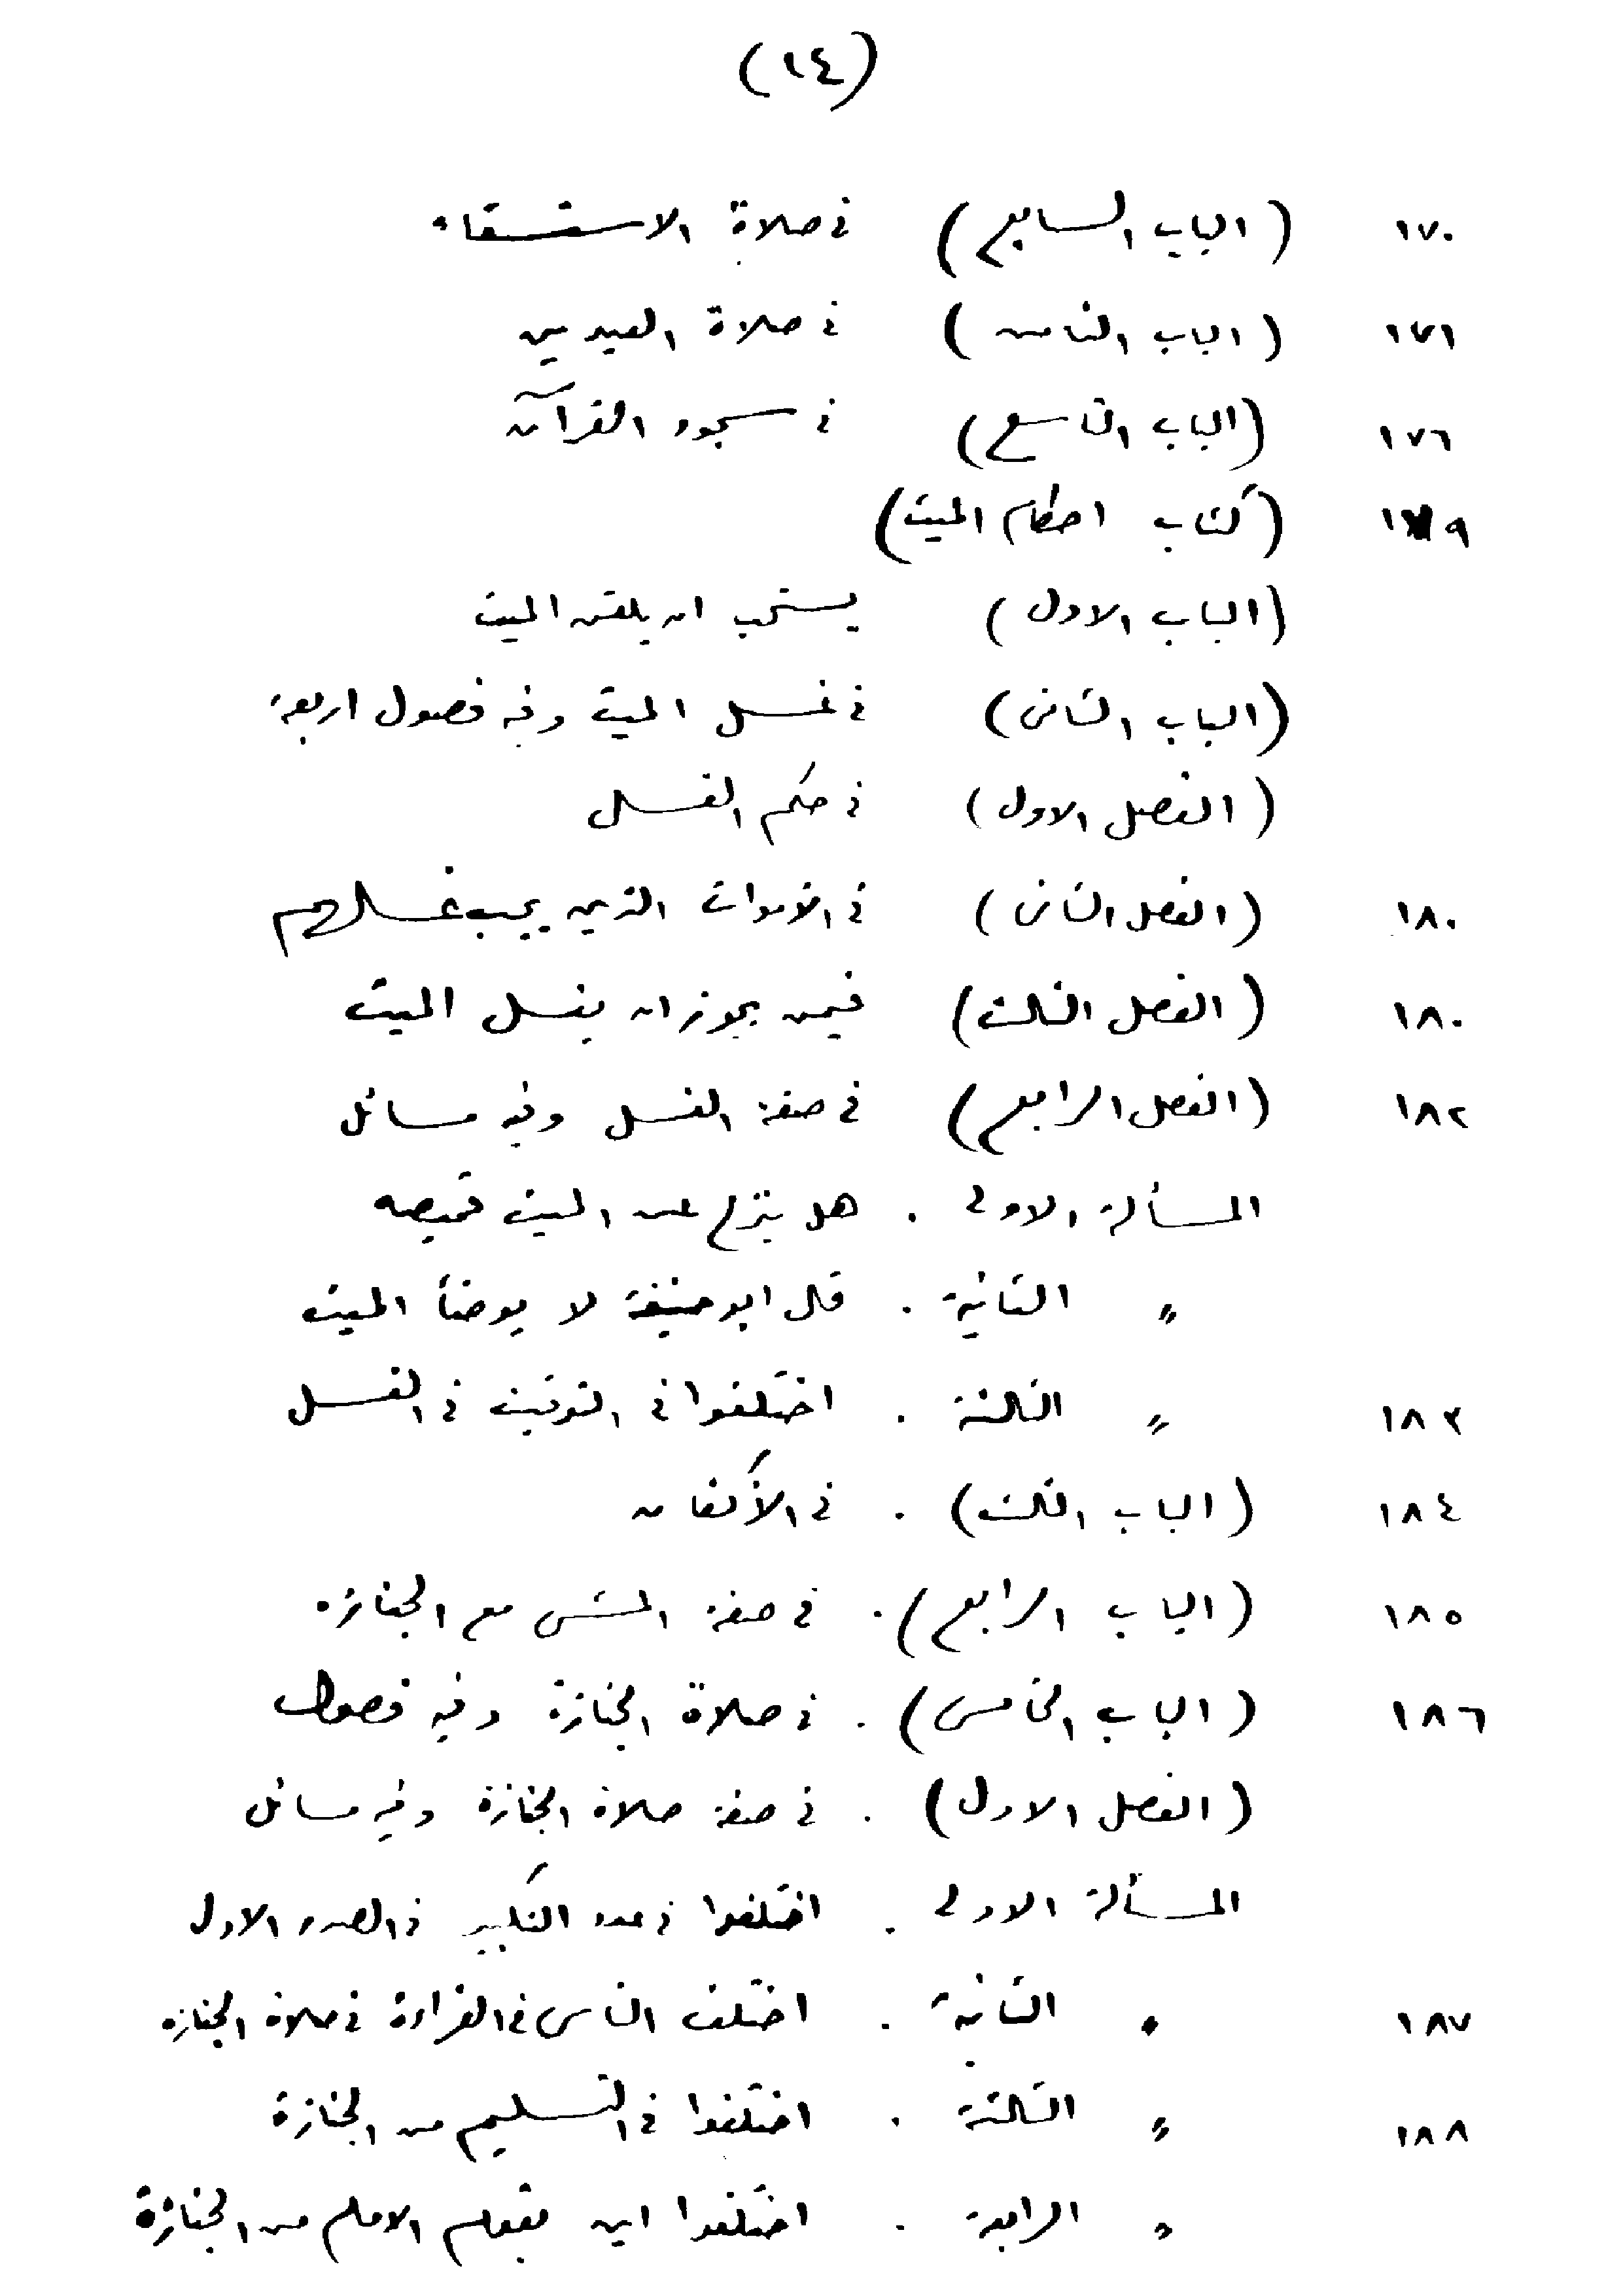 (١٤)
١٧٠ (الباب السابع) في صلاة الاستسقاء
١٧١ (الباب الثامن) في صلاة العيدين
١٧٦ (الباب التاسع) في سجود القرآن
١٧٩ (كتاب احكام الميت)
(الباب الاول) يستحب ان يلقن الميت
(الباب الثاني) في غسل الميت وفيه فصول اربعة
(الفصل الاول) في حكم الغسل
١٨٠ (الفصل الثاني) في الأموات الذين يجب غسلهم
١٨٠ (الفصل الثالث) فيمن يجوز ان يغسل الميت
١٨٢ (الفصل الرابع) في صفة الغسل وفيه مسائل
المسألة الاولى . هل ينزع عن الميت قميصه
〃 الثانية . قال ابو حنيفة لا يوضأ الميت
١٨٣ 〃 الثالثة . اختلفوا في التوقيت في الغسل
١٨٤ (الباب الثالث) . في الأكفان
١٨٥ (الباب الرابع) . في صفة المشي مع الجنازه
١٨٦ (الباب الخامس) . في صلاة الجنازة وفيه فصول
(الفصل الاول) . في صفة صلاة الجنازة وفيه مسائل
المسألة الاولى . اختلفوا في عدد التكبير في الصدر الاول
١٨٧ 〃 الثانية . اختلف الناس في القراءة في صلاة الجنازه
١٨٨ 〃 الثالثة . اختلفوا في التسليم من الجنازة
〃 الرابعة . اختلفوا اين يقوم الامام من الجنازة